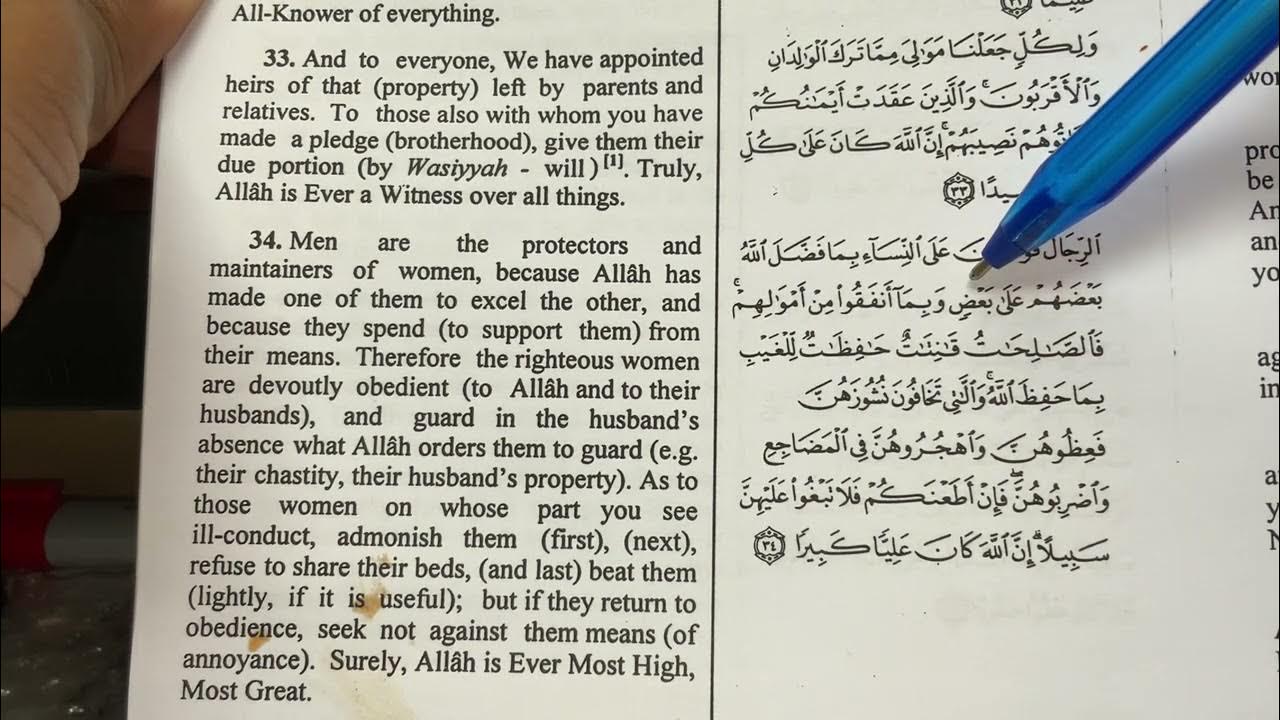 All-Knower of everything.
33. And to everyone, We have appointed
heirs of that (property) left by parents and
relatives. To those also with whom you have
made a pledge (brotherhood), give them their
due portion (by Wasiyyah - will)[1]. Truly,
Allâh is Ever a Witness over all things.
34. Men are the protectors and
maintainers of women, because Allâh has
made one of them to excel the other, and
because they spend (to support them) from
their means. Therefore the righteous women
are devoutly obedient (to Allâh and to their
husbands), and guard in the husband's
absence what Allâh orders them to guard (e.g.
their chastity, their husband's property). As to
those women on whose part you see
ill-conduct, admonish them (first), (next),
refuse to share their beds, (and last) beat them
(lightly, if it is useful); but if they return to
obedience, seek not against them means (of
annoyance). Surely, Allâh is Ever Most High,
Most Great.
وَلِكُلٍّ جَعَلْنَا مَوَٰلِىَ مِمَّا تَرَكَ ٱلْوَٰلِدَانِ
وَٱلْأَقْرَبُونَ ۚ وَٱلَّذِينَ عَقَدَتْ أَيْمَٰنُكُمْ
نَصِيبَهُمْ ۚ إِنَّ ٱللَّهَ كَانَ عَلَىٰ كُلِّ
٣٣
ٱلرِّجَالُ عَلَى ٱلنِّسَآءِ بِمَا فَضَّلَ ٱللَّهُ
بَعْضَهُمْ عَلَىٰ بَعْضٍ وَبِمَآ أَنفَقُوا۟ مِنْ أَمْوَٰلِهِمْ ۚ
فَٱلصَّٰلِحَٰتُ قَٰنِتَٰتٌ حَٰفِظَٰتٌ لِّلْغَيْبِ
بِمَا حَفِظَ ٱللَّهُ ۚ وَٱلَّٰتِى تَخَافُونَ نُشُوزَهُنَّ
فَعِظُوهُنَّ وَٱهْجُرُوهُنَّ فِى ٱلْمَضَاجِعِ
وَٱضْرِبُوهُنَّ ۖ فَإِنْ أَطَعْنَكُمْ فَلَا تَبْغُوا۟ عَلَيْهِنَّ
سَبِيلًا ۗ إِنَّ ٱللَّهَ كَانَ عَلِيًّا كَبِيرًا ٣٤